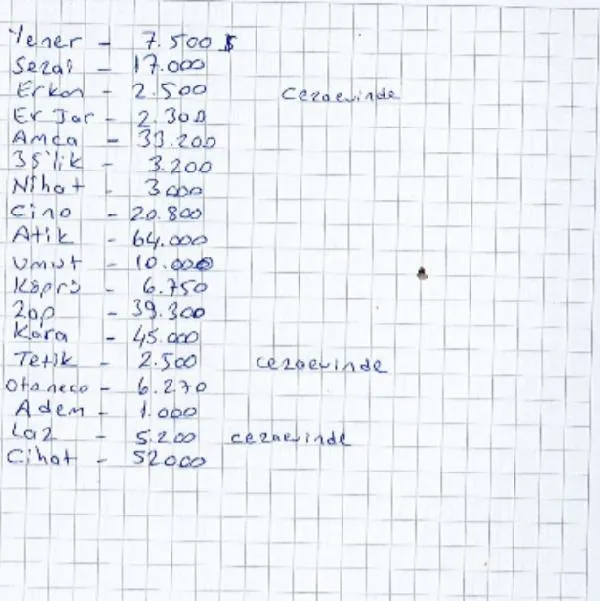 Yener - 7.500 $
Sezai - 17.000
Erkan - 2.500 cezaevinde
Er Jar - 2.300
Amca - 33.200
35'lik - 3.200
Nihat - 3000
Cino - 20.800
Atik - 64.000
Umut - 10.000
Köprü - 6.750
Zap - 39.300
Kara - 45.000
Tetik - 2.500 cezaevinde
- 6.270
Adem - 1.000
Laz - 5.200 cezaevinde
Cihat - 52000